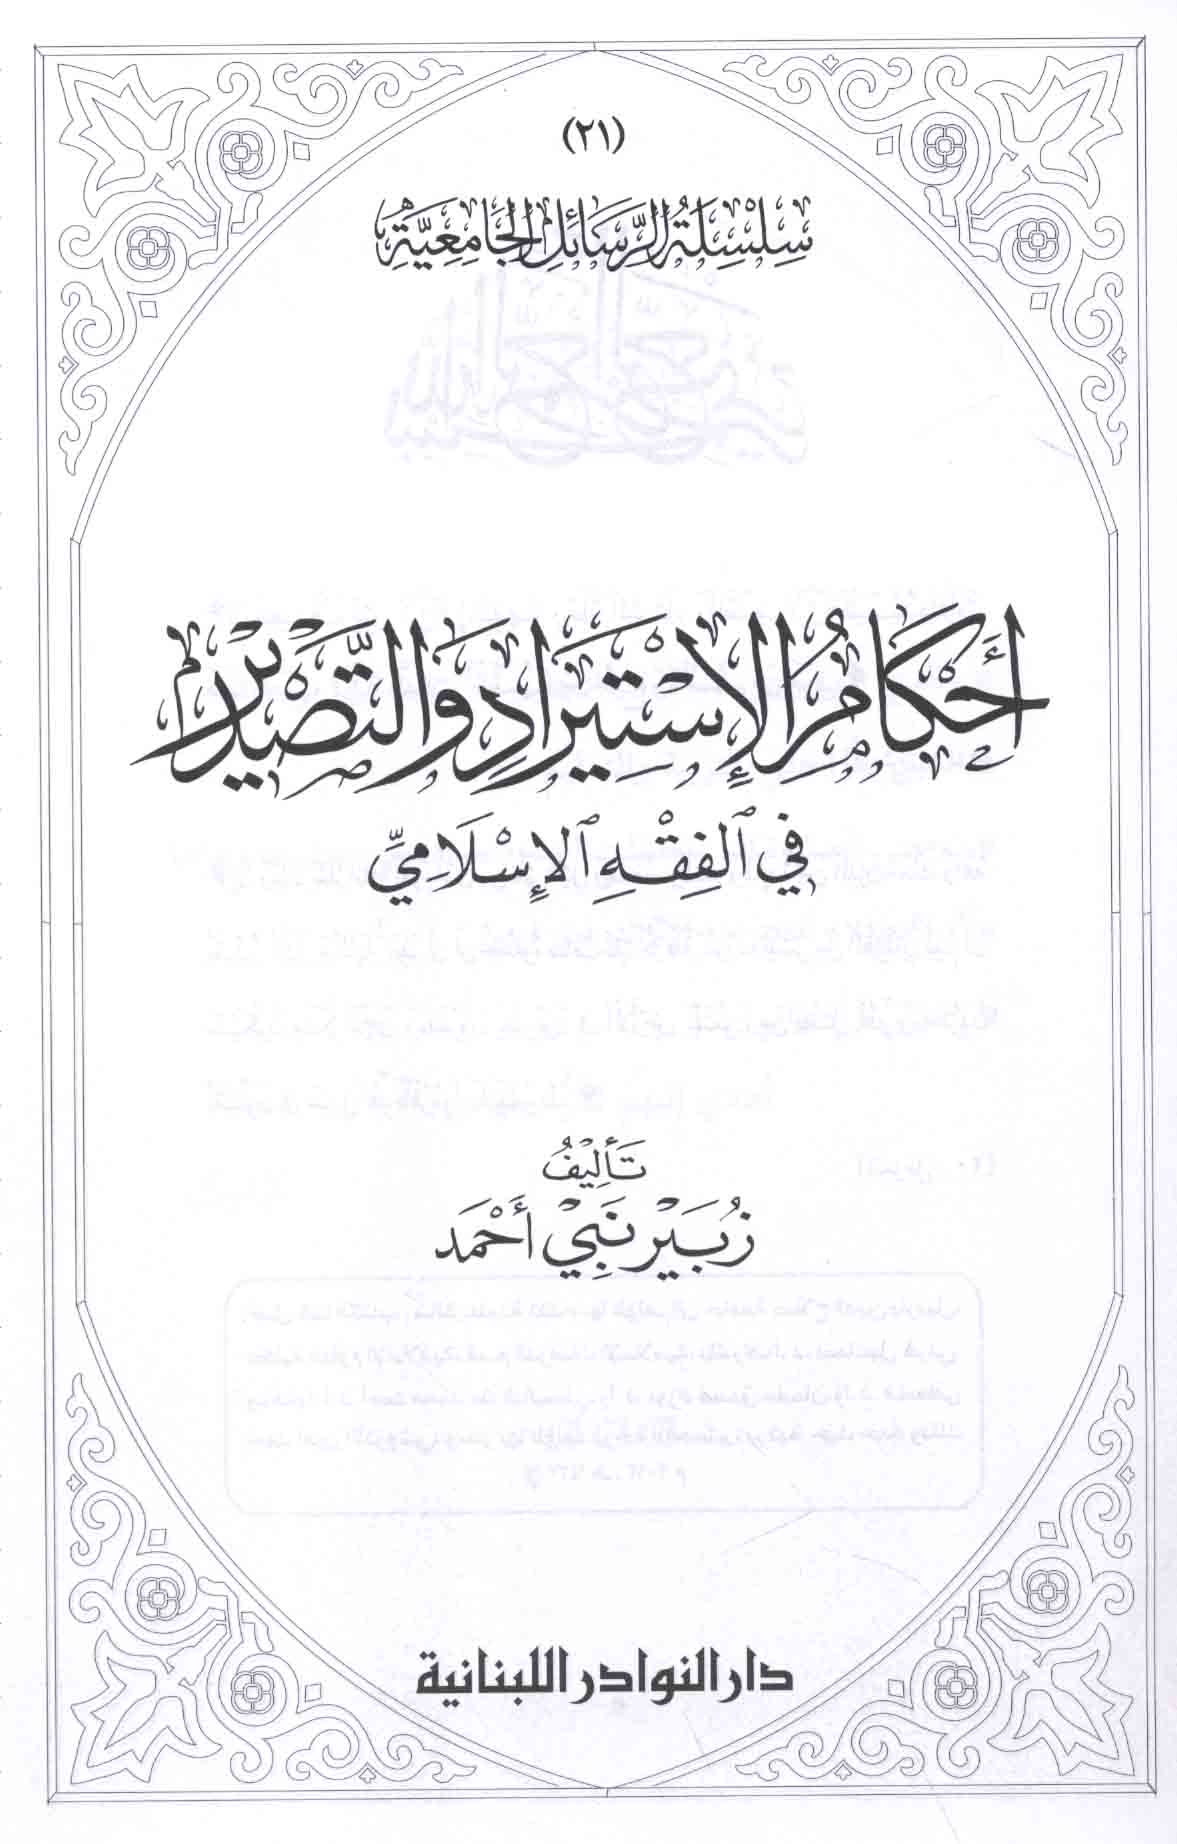 (٢١)
سِلْسِلَةُ الرَّسَائِلِ الجَامِعِيَّةِ
أَحْكَامُ الِاسْتِيرَادِ وَالتَّصْدِيرِ
فِي الفِقْهِ الإِسْلَامِيِّ
تَأْلِيفُ
زُبَيْر نَبِي أَحْمَد
دار النوادر اللبنانية